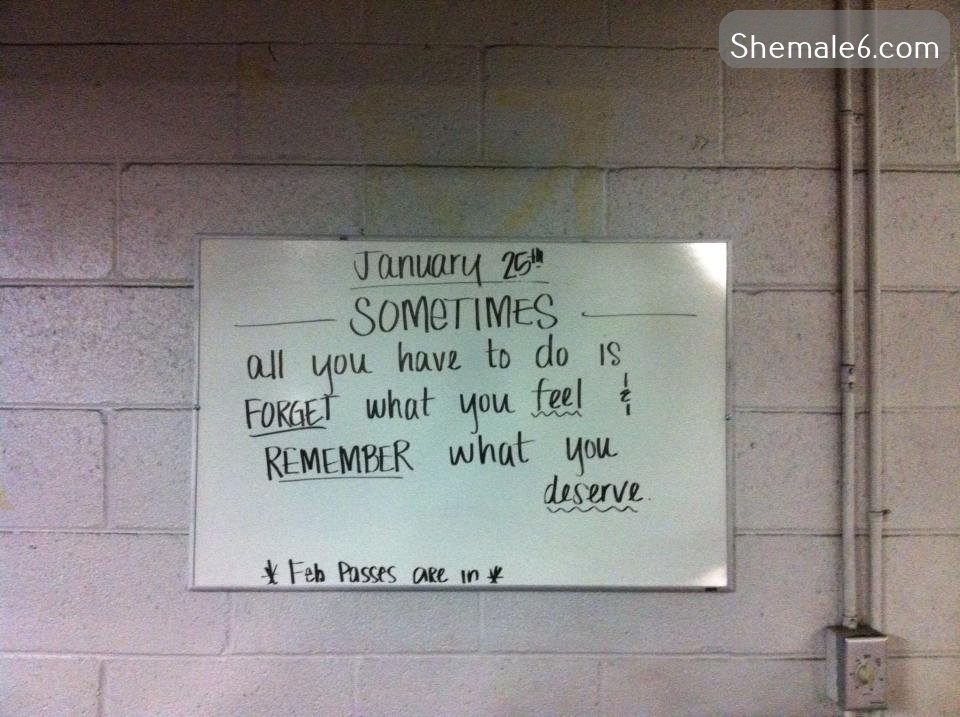 Shemale6.com
January 25th
SOMETIMES
all you have to do IS
FORGET what you feel &
REMEMBER what you
deserve.
* Feb Passes are in *